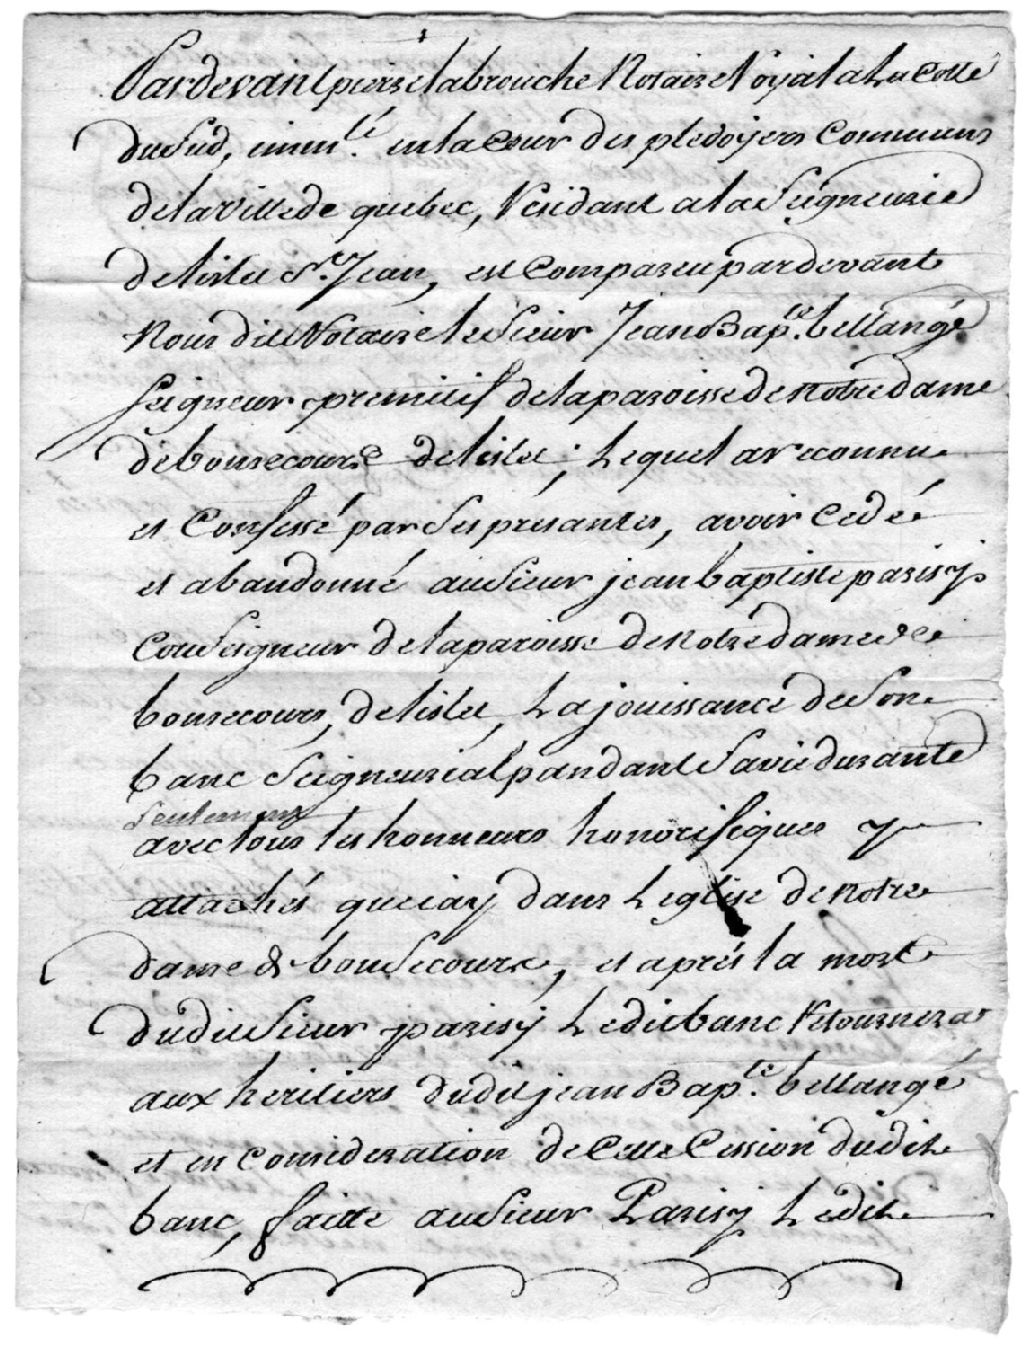 Pardevant pierre labrouche Notaire Royal a La Cotte
du Sud, imm.té en la Cour des pledoyers Communs
de la ville de quebec, Residant a la Seigneurie
de lislet St. Jean, est Comparu pardevant
Nous dit Notaire le Sieur Jean Bap.te bellangé
Seigneur primitif de la paroisse de Notre dame
de bonsecours de lislet; Lequel a reconnu
et Confessé par Ses presantes, avoir Cedéé
et abandonné au Sieur jean baptiste parisÿ
Conseigneur de la paroisse de Notre dame de
bonsecours, de lislet, La jouissance de Son
banc Seigneurial pandant Sa vie durante
Seulement
avec tous les honneurs honorifiques y
attachés quei aÿ dans Leglise de Notre
dame de bonSecours, et aprés la mort
dudit Sieur parisÿ Ledit banc Retournera
aux heritiers dudit jean Bap.te bellangé
et en Consideration de Cette Cession dudit
banc, faitte au Sieur Parisÿ Ledit